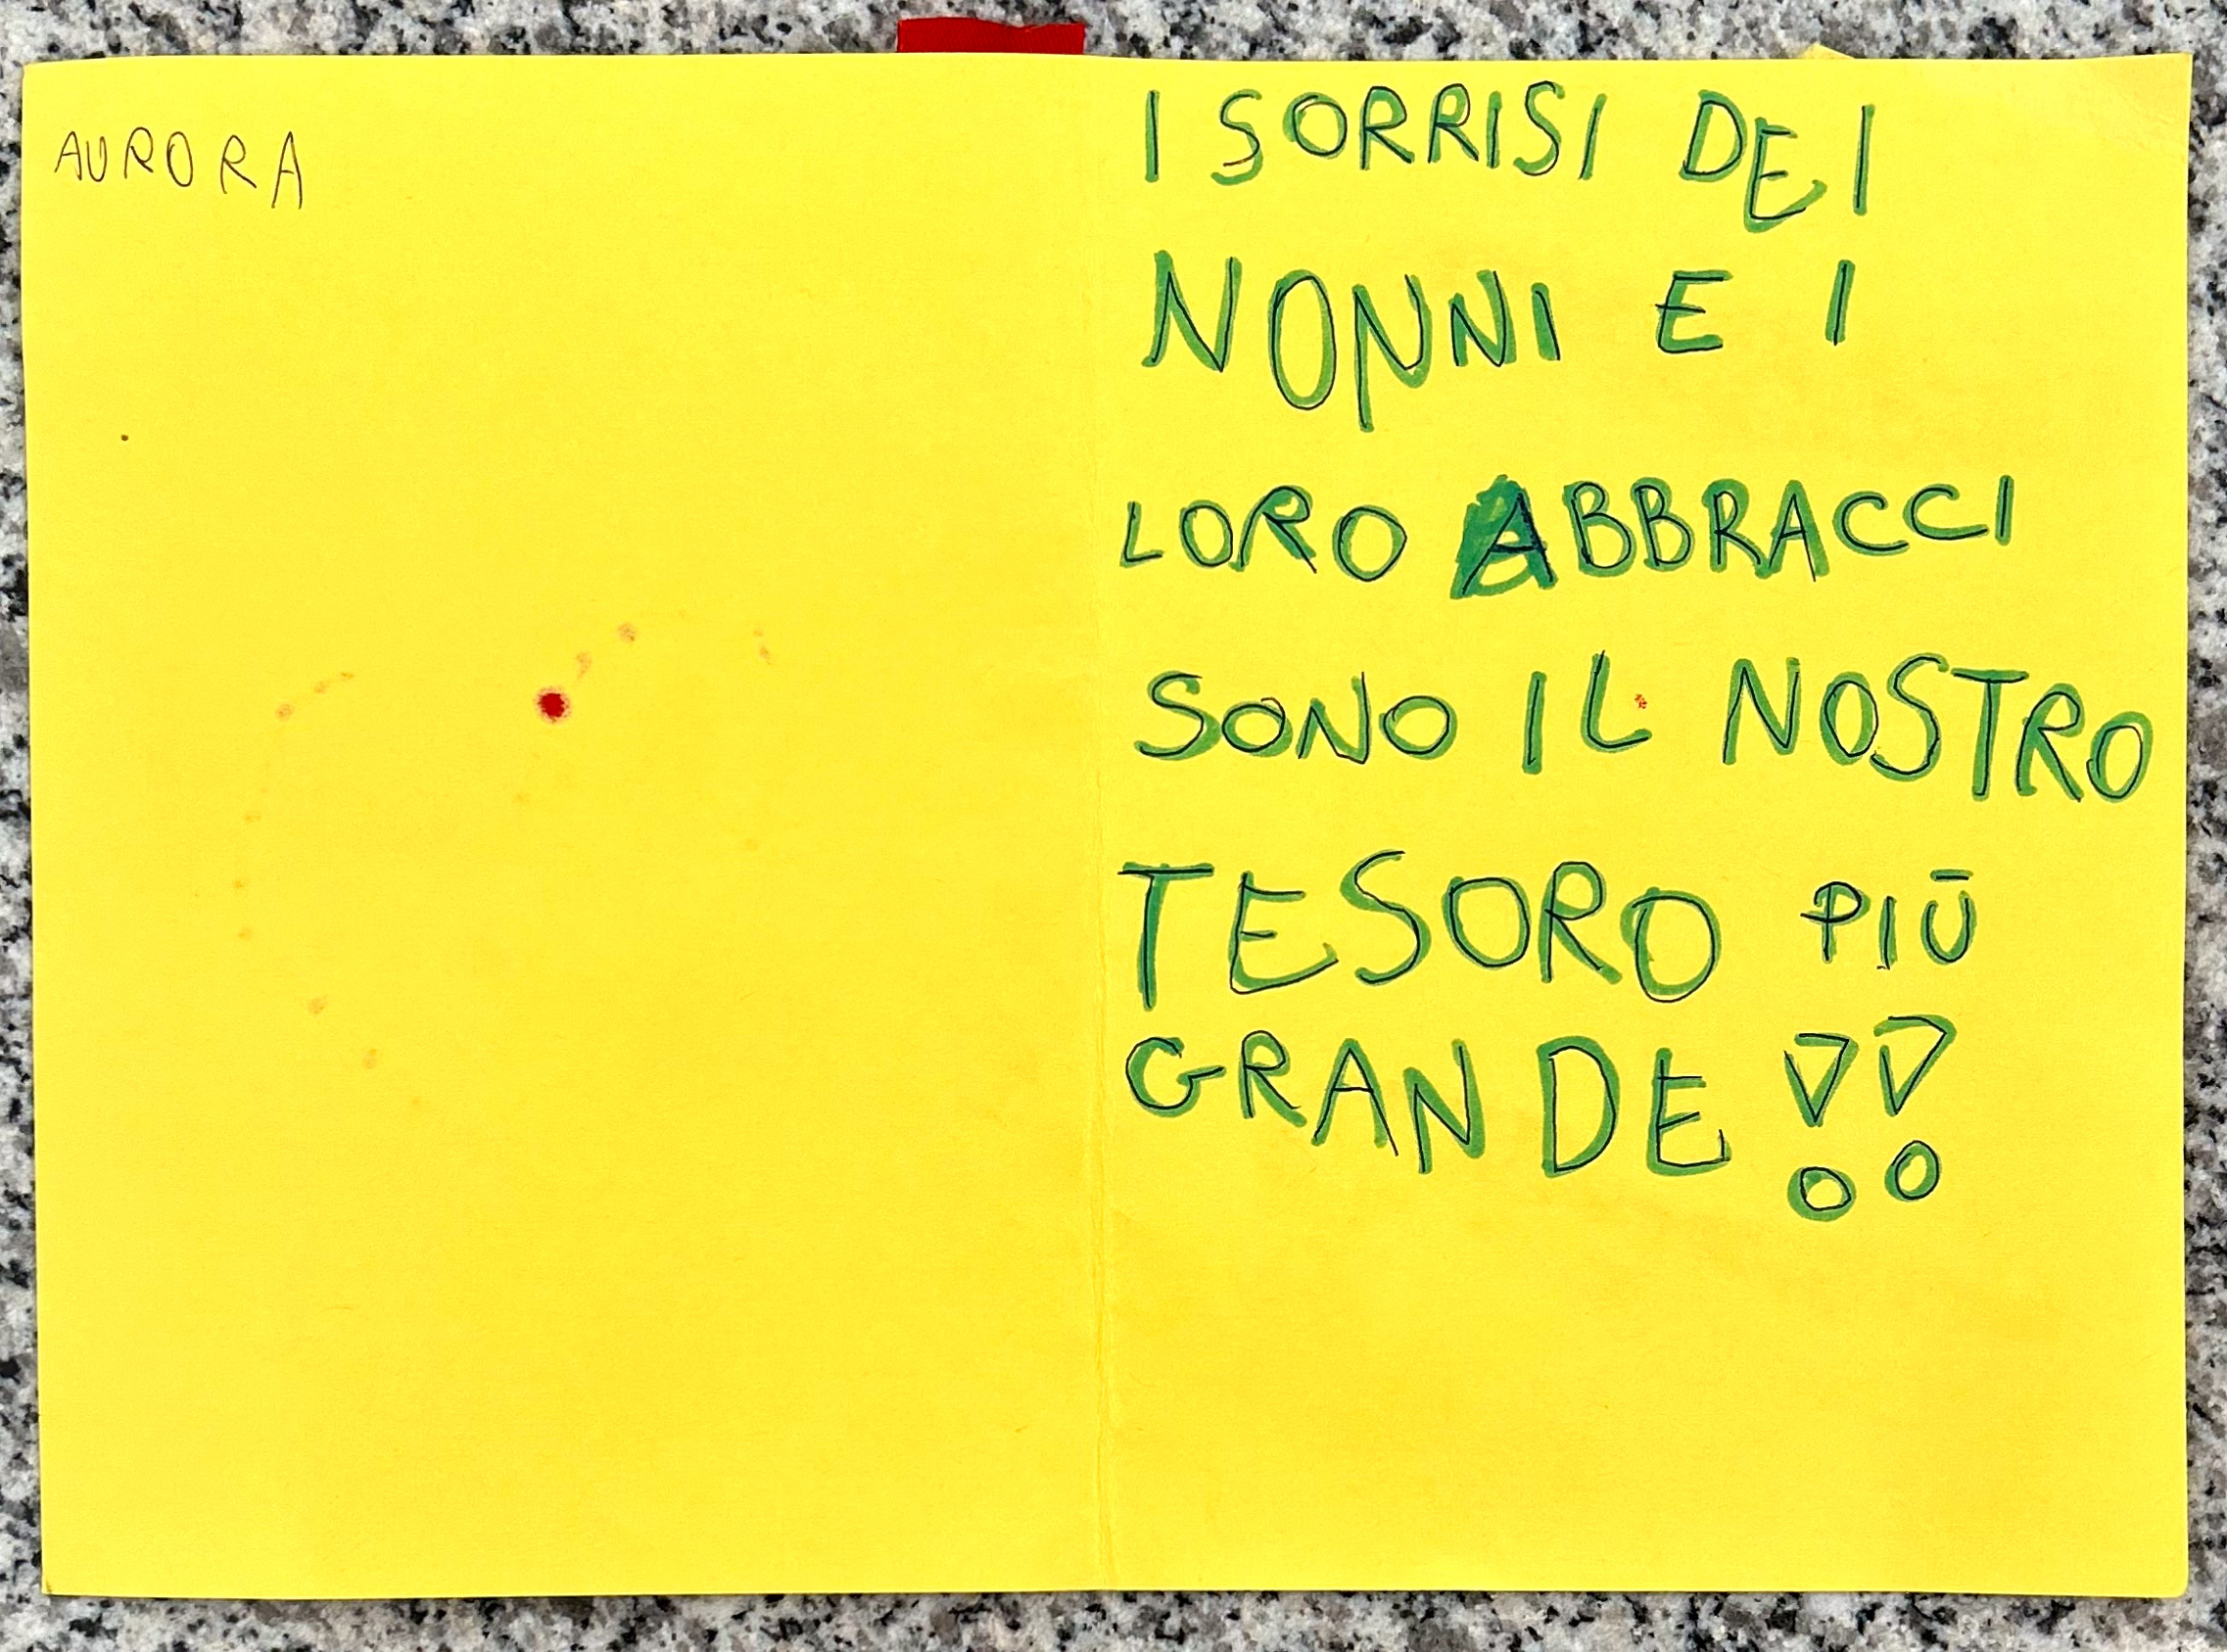 AURORA
I SORRISI DEI
NONNI E I
LORO ABBRACCI
SONO IL NOSTRO
TESORO PIÙ
GRANDE !!